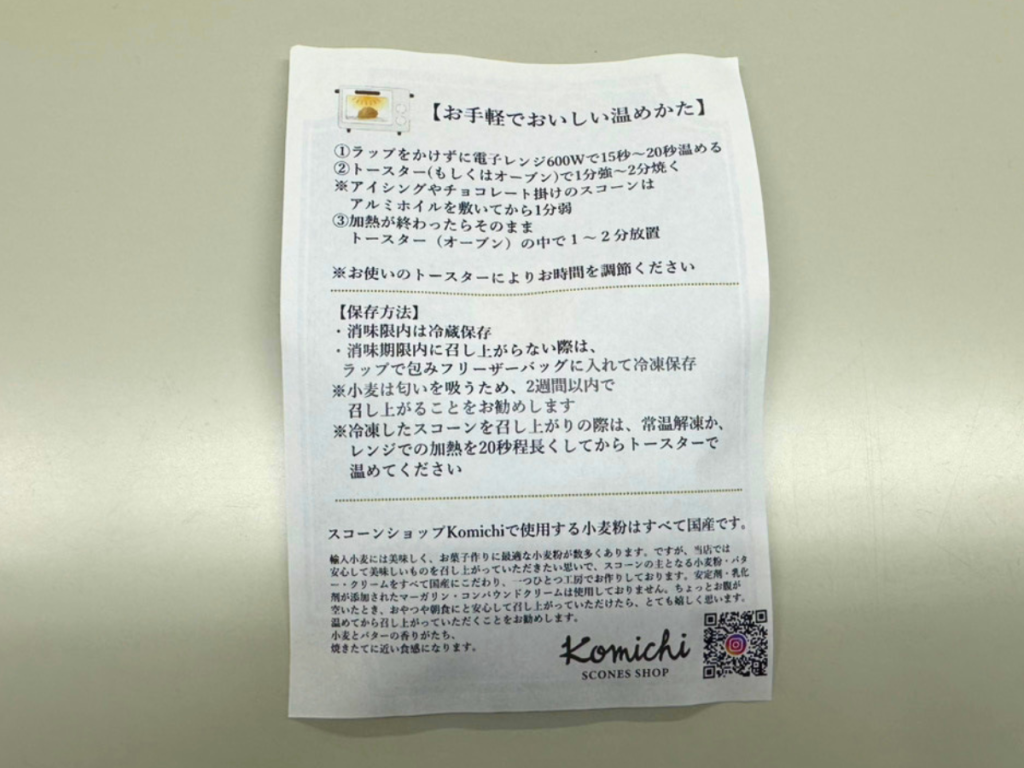 【お手軽でおいしい温めかた】
①ラップをかけずに電子レンジ600Wで15秒〜20秒温める
②トースター(もしくはオーブン)で1分強〜2分焼く
※アイシングやチョコレート掛けのスコーンは
アルミホイルを敷いてから1分弱
③加熱が終わったらそのまま
トースター（オーブン）の中で１〜２分放置
※お使いのトースターによりお時間を調節ください
【保存方法】
・消味限内は冷蔵保存
・消味期限内に召し上がらない際は、
ラップで包みフリーザーバッグに入れて冷凍保存
※小麦は匂いを吸うため、2週間以内で
召し上がることをお勧めします
※冷凍したスコーンを召し上がりの際は、常温解凍か、
レンジでの加熱を20秒程長くしてからトースターで
温めてください
スコーンショップKomichiで使用する小麦粉はすべて国産です。
輸入小麦には美味しく、お菓子作りに最適な小麦粉が数多くあります。ですが、当店では
安心して美味しいものを召し上がっていただきたい思いで、スコーンの主となる小麦粉・バタ
ー・クリームをすべて国産にこだわり、一つひとつ工房でお作りしております。安定剤・乳化
剤が添加されたマーガリン・コンパウンドクリームは使用しておりません。ちょっとお腹が
空いたとき、おやつや朝食にと安心して召し上がっていただけたら、とても嬉しく思います。
温めてから召し上がっていただくことをお勧めします。
小麦とバターの香りがたち、
焼きたてに近い食感になります。
Komichi
SCONES SHOP